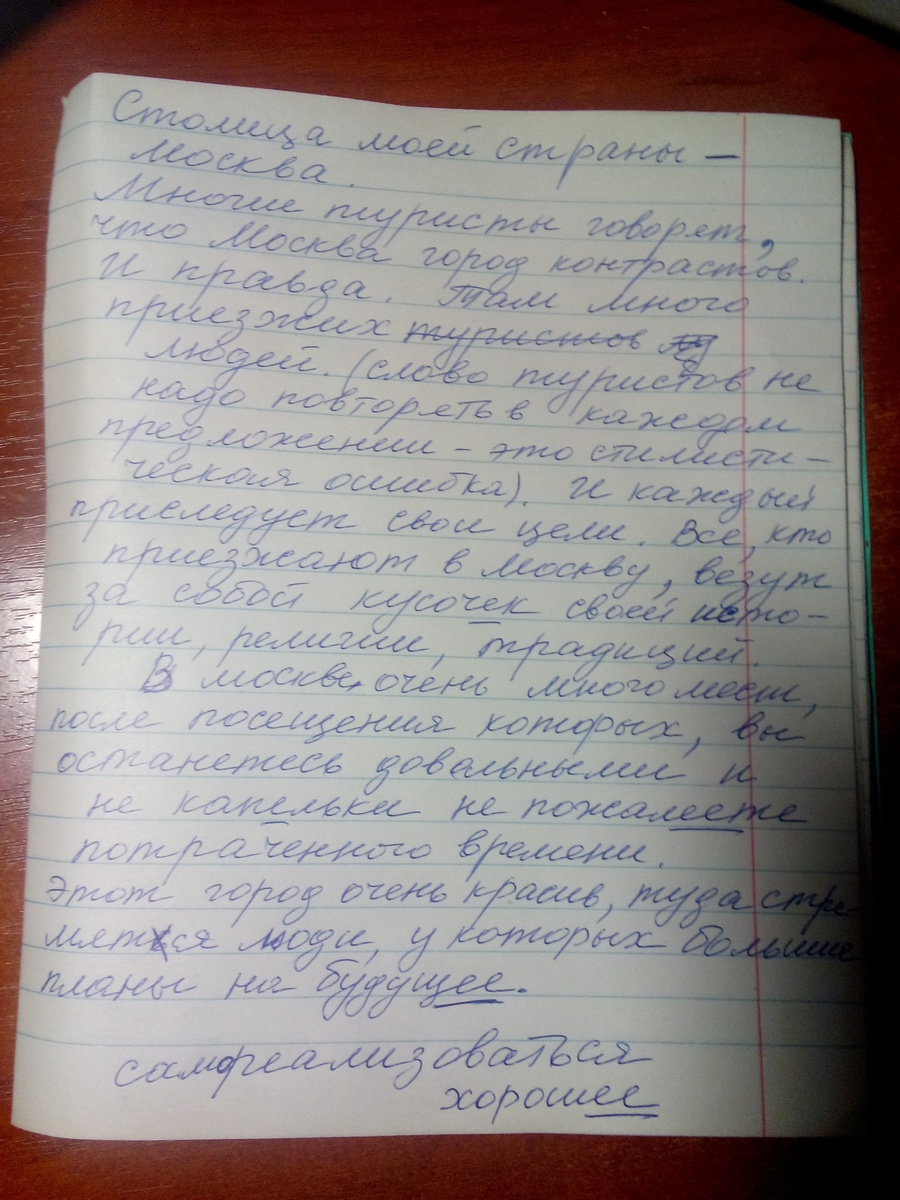 Столица моей страны –
Москва.
Многие туристы говорят,
что Москва город контрастов.
И правда. Там много
приезжих туристов
людей. (слово туристов не
надо повторять в каждом
предложении – это стилисти-
ческая ошибка). И каждый
приследует свои цели. Все, кто
приезжают в Москву, везут
за собой кусочек своей исто-
рии, религии, традиций.
В Москве очень много мест,
после посещения которых, вы
останетесь довольными и
не капельки не пожалеете
потраченного времени.
Этот город очень красив, туда стре-
мятся люди, у которых большие
планы на будущее.
самореализоваться
хорошее